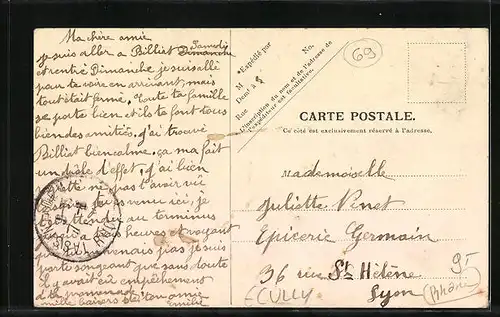 Ma chère amie
je suis aller a Billiat Samedi Dimanche
et rentré Dimanche je suis allé
pour te voire en arrivant mais
tout était fermé, toute ta famille
se porte bien et ils te font tous
bien des amities, j'ai trouvé
Billiat bien calme, ça ma fait
un drôle d'effet, j'ai bien
regretté ne pas t'avoir vu
venu ici, je
attendu au terminus
heures et voyant
venais pas je suis
parti songeant que sans doute
il y avait eu empêchement
a la promenade,
mille baisers de ton amie
Emilie
Expédié par
M
Demt à
Rue
No.
L'inscription du nom et de l'adresse de
l'expéditeur est facultative.
69
CARTE POSTALE.
Ce côté est exclusivement réservé à l'adresse.
Mademoiselle
Juliette Vinet
Epicerie Germain
36 rue Ste Hélène
Lyon
(Rhône)
ECULLY